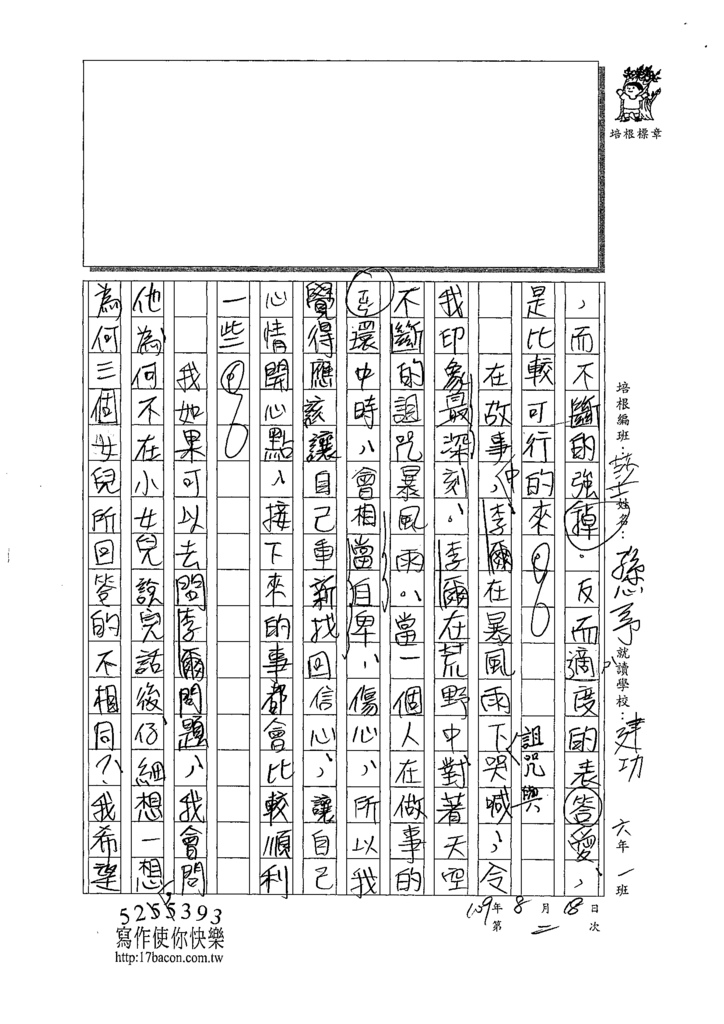 培根標章
培根編班：培土 姓名：孫心予 就讀學校：建功 六年一班
109年8月18日
第二次
，而不斷的強掉。反而適度的表答愛，
是比較可行的來
在故事中，李爾在暴風雨下詛咒與哭喊，令
我印象最深刻。李爾在荒野中對著天空
不斷的詛咒暴風雨。當一個人在做事的
環中時，會相當自卑、傷心，所以我
覺得應該讓自己重新找回信心，讓自己
心情開心點，接下來的事都會比較順利
一些
我如果可以去問李爾問題，我會問
他為何不在小女兒說完話後仔細想一想，
為何三個女兒所回答的不相同？我希望
5255393
寫作使你快樂
http:17bacon.com.tw